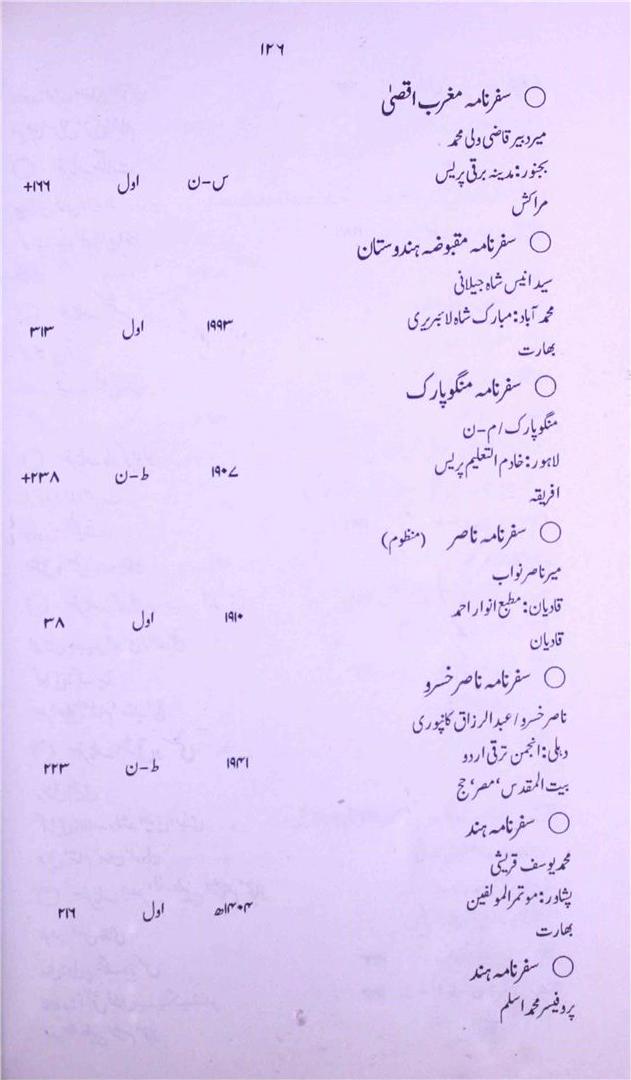 ۱۲۶
○ سفرنامہ مغرب اقصیٰ
میر دبیر قاضی ولی محمد
بجنور: مدینہ برقی پریس س-ن اول ۱۶۶+
مراکش
○ سفرنامہ مقبوضہ ہندوستان
سید انیس شاہ جیلانی
محمد آباد: مبارک شاہ لائبریری ۱۹۹۳ اول ۳۱۳
بھارت
○ سفرنامہ منگوپارک
منگوپارک/م-ن
لاہور: خادم التعلیم پریس ۱۹۰۷ ط-ن ۲۳۸+
افریقہ
○ سفرنامہ ناصر (منظوم)
میر ناصر نواب
قادیان: مطبع انوار احمد ۱۹۱۰ اول ۳۸
قادیان
○ سفرنامہ ناصر خسرو
ناصر خسرو/عبدالرزاق کانپوری
دہلی: انجمن ترقی اردو ۱۹۴۱ ط-ن ۲۲۳
بیت المقدس، مصر، حج
○ سفرنامہ ہند
محمد یوسف قریشی
پشاور: موتمرالمولفین ۱۴۰۴ھ اول ۲۱۶
بھارت
○ سفرنامہ ہند
پروفیسر محمد اسلم